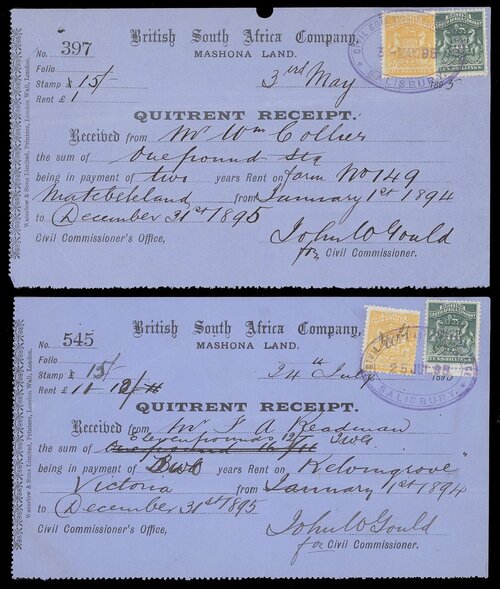 No. 397
British South Africa Company,
MASHONA LAND.
Folio
Stamp £ 15/-
Rent £ 1
3rd May 1895
QUITRENT RECEIPT.
Received from Mr Wm Collier
the sum of One pound Stg
being in payment of two years Rent on Farm No 149
Matebeleland from January 1st 1894
to December 31st 1895
Civil Commissioner's Office,
John W Gould
for Civil Commissioner.
Waterlow & Sons Limited, Printers, London Wall, London.
SALISBURY
No. 545
British South Africa Company,
MASHONA LAND.
Folio
Stamp £ 15/-
Rent £ 11 12/
24th July 1895
25 JUL 95
SALISBURY
QUITRENT RECEIPT.
Received from Mr F A Readman
Eleven pounds 12/
the sum of One pound
being in payment of Two years Rent on "Kelvingrove"
Victoria from January 1st 1894
to December 31st 1895
Civil Commissioner's Office,
John W Gould
for Civil Commissioner.
Waterlow & Sons Limited, Printers, London Wall, London.